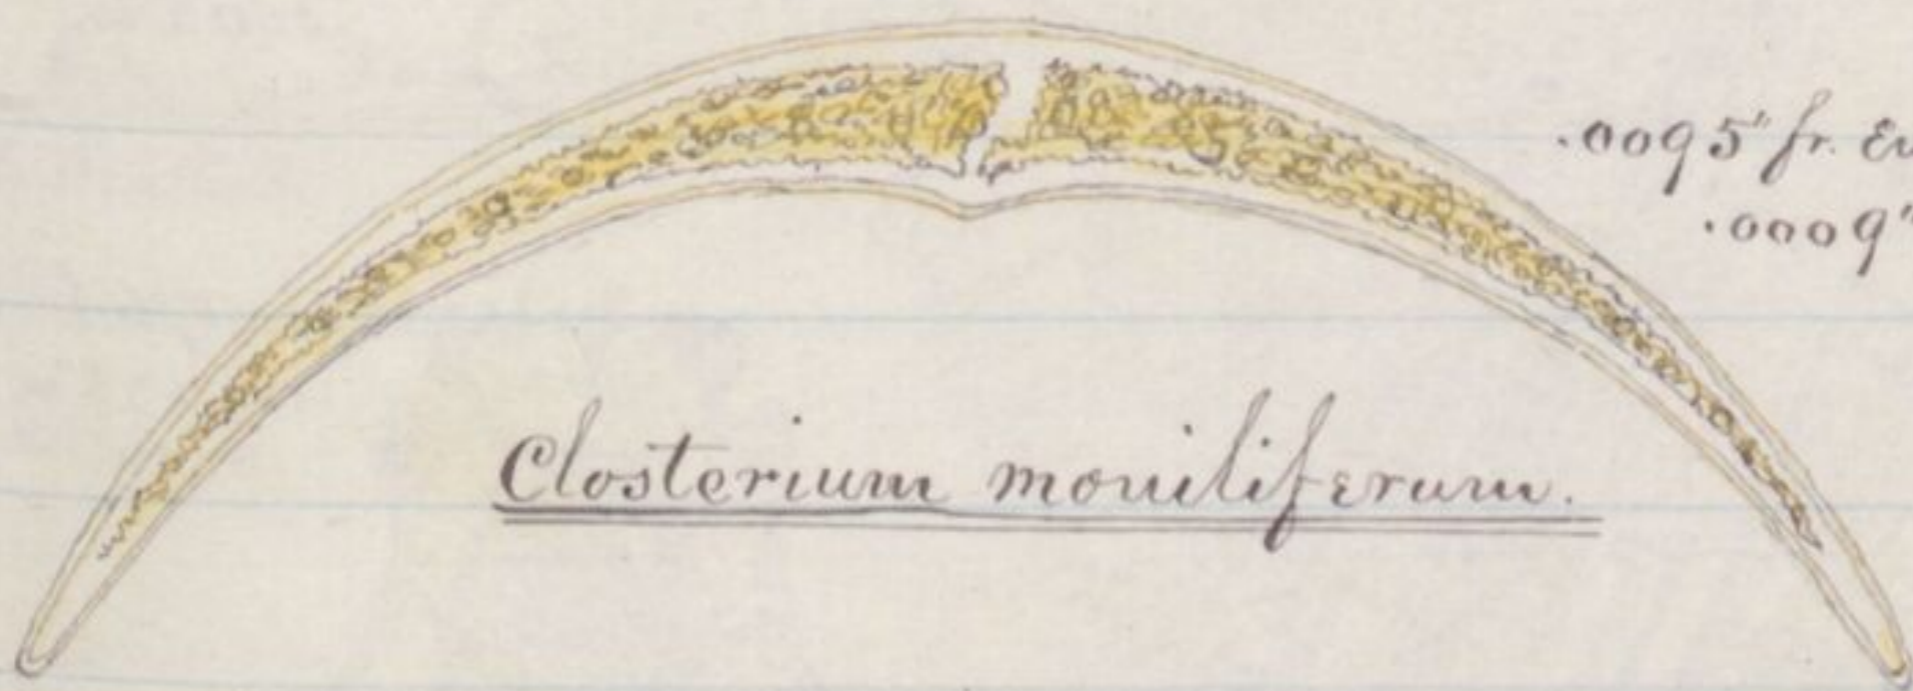 .0095" fr.
.0009"
Closterium moniliferum.